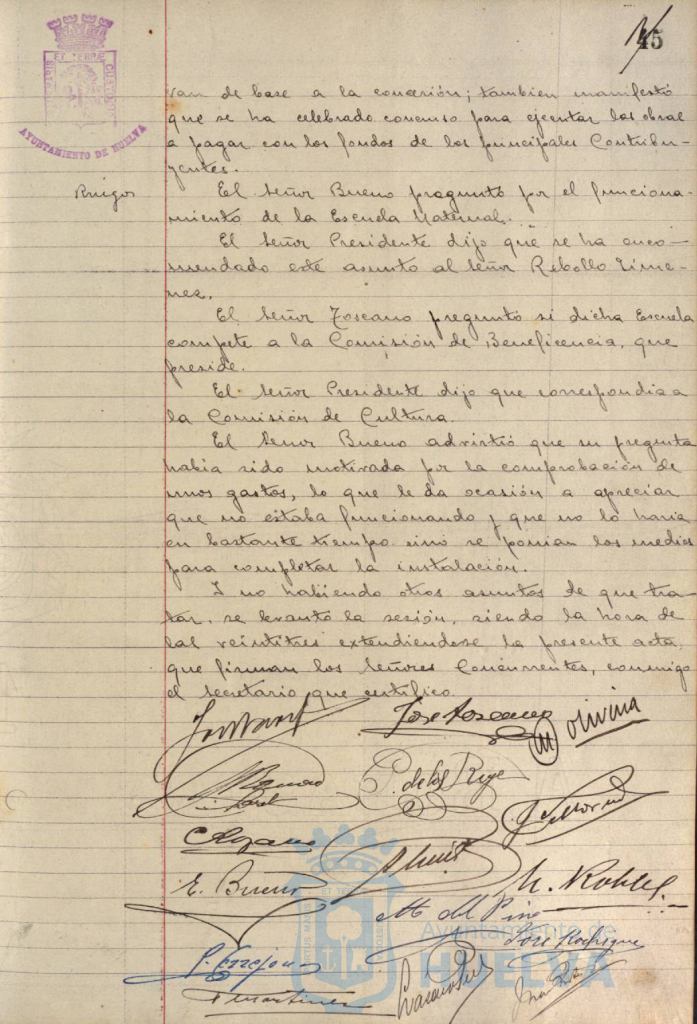 45
AYUNTAMIENTO DE HUELVA
van de base a la concesión; tambien manifestó
que se ha celebrado concurso para ejecutar las obras
a pagar con los fondos de los principales Contribu-
yentes.
Ruegos
El Señor Bueno pregunto por el funciona-
miento de la Escuela Maternal.
El Señor Presidente dijo que se ha enco-
mendado este asunto al Señor Rebollo Jime-
nez.
El Señor Toscano pregunto si dicha Escuela
compete a la Comisión de Beneficencia, que
preside.
El Señor Presidente dijo que correspondia a
la Comisión de Cultura.
El Señor Bueno advirtió que su pregunta
habia sido motivada por la comprobación de
unos gastos, lo que le da ocasión a apreciar
que no estaba funcionando y que no lo haria
en bastante tiempo sino se ponian los medios
para completar la instalación.
Y no habiendo otros asuntos de que tra-
tar, se levantó la sesión, siendo la hora de
las veintitres extendiendose la presente acta,
que firman los Señores Concurrentes, conmigo
el secretario que certifico.
Jose Toscano
M Olivina
P. de los Reyes
E. Bueno
M. Robles
M. del Pino
Jose Rodrigue
P. Cerrejon
F Martinez
Ayuntamiento de
HUELVA